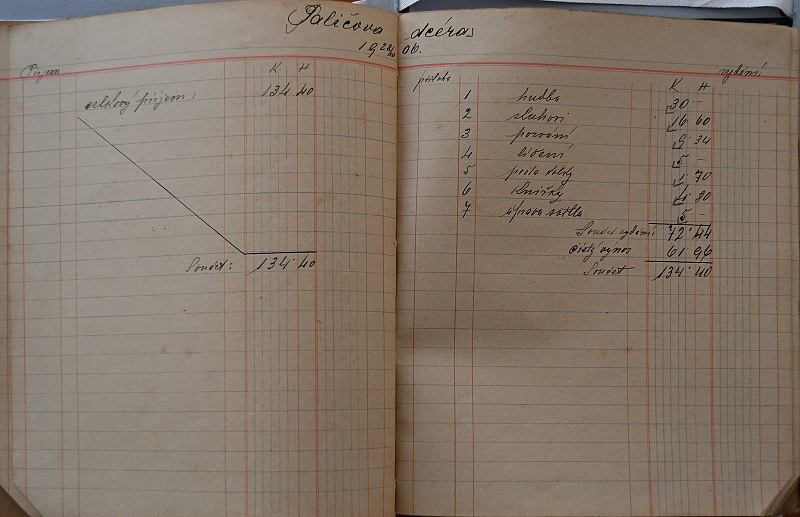 Paličova dcéra
19 28/10 06.
Příjem
K H
celkový příjem: 134 40
Součet: 134 40
příloha
vydání
K H
1 hudba 30 –
2 sluhovi 16 60
3 pozvání 9 34
4 líčení 5 –
5 1 70
6 knížky 4 80
7 5 –
Součet vydání: 72 44
čistý výnos 61 96
Součet 134 40